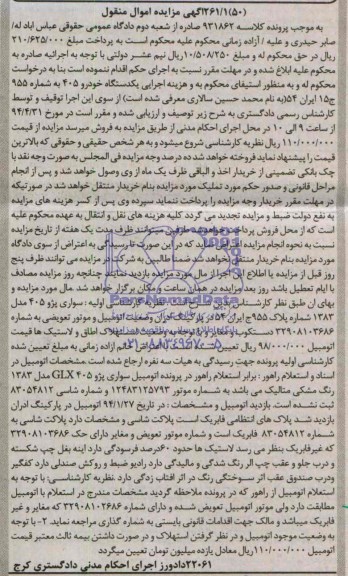 آگهی مزایده اموال منقول ۲۶۱/۱(۵۰)
به موجب پرونده کلاسه ۹۳۱۸۶۲ صادره از شعبه دوم دادگاه عمومی حقوقی عباس ایاد له/
صابر حیدری و علیه / آزاده زمانی محکوم علیه محکوم است به پرداخت مبلغ ۲۱۰/۶۲۵/۰۰۰
ریال در حق محکوم له و مبلغ ۱۰/۵۰۸/۲۵۰ ریال نیم عشر دولتی با توجه به اجرائیه صادره به
محکوم علیه ابلاغ شده و در مهلت مقرر نسبت به اجرای حکم اقدام ننموده است بنا به درخواست
محکوم له و به منظور استیفای محکوم به و هزینه اجرایی یکدستگاه خودرو ۴۰۵ به شماره ۹۵۵
ج۱۵ ایران ۵۴ (به نام محمد حسین سالاری معرفی شده است) از سوی این اجرا توقیف و توسط
کارشناس رسمی دادگستری به شرح زیر توصیف و ارزیابی شده و مقرر است در مورخ ۹۴/۴/۳۱
از ساعت ۹ الی ۱۰ در محل اجرای احکام مدنی از طریق مزایده به فروش میرسد مزایده از قیمت
۱۱۰/۰۰۰/۰۰۰ ریال نظریه کارشناسی شروع میشود و به هر شخص حقیقی و حقوقی که بالاترین
قیمت را پیشنهاد نماید فروخته خواهد شد ده درصد وجه مزایده فی المجلس به صورت وجه نقد یا
چک بانکی تضمینی از خریدار اخذ و الباقی ظرف یک ماه از وی وصول خواهد شد و پس از انجام
مراحل قانونی و صدور حکم مورد تملیک مورد مزایده بنام خریدار منتقل خواهد شد در صورتیکه
در مهلت مقرر خریدار وجه مزایده را پرداخت ننماید سپرده وی پس از کسر هزینه های مزایده
به نفع دولت ضبط و مزایده تجدید می گردد کلیه هزینه های نقل و انتقال به عهده محکوم علیه
است که از محل فروش پرداخت خواهد شد طرفین میتوانند ظرف مدت یک هفته از تاریخ مزایده
نسبت به نحوه انجام مزایده اعتراض نماید که در این صورت تا رسیدگی به اعتراض از سوی دادگاه
مورد مزایده بنام خریدار منتقل نخواهد شد ضمنا طالبین به شرکت در مزایده می توانند ظرف پنج
روز قبل از مزایده با اطلاع این اجرا از مال مورد مزایده بازدید نمایند چنانچه روز مزایده مصادف
با ایام تعطیل باشد روز بعد مزایده در همان ساعت و مکان برگزار خواهد شد. مال مورد مزایده و
بهای ان طبق نظر کارشناس اولیه : سواری پژو ۴۰۵ مدل
۱۳۸۳ شماره پلاک ۹۵۵ج۱۵ ایران ۵۴ اتومبیل و موتور تعویضی به شماره
۳۲۹۰۸۱۰۳۶۸۶ اطاق و لاستیک ها قیمت
اتومبیل ۹۸/۰۰۰/۰۰۰ ریال تعیین خانم آزاده زمانی به مبلغ تعیین شده
کارشناسی اولیه پرونده جهت رسیدگی به هیات سه نفره ارجاع شده است. مشخصات اتومبیل در
اسناد و استعلام راهور : برابر استعلام راهور در پرونده اتومبیل سواری پژو ۴۰۵ GLX مدل ۱۳۸۳
رنگ مشکی متالیک می باشد به شماره موتور ۱۲۴۸۳۱۲۵۷۹۳ و شماره شاسی ۸۳۰۵۴۸۱۲
ثبت شده است. بازدید اتومبیل و مشخصات : در تاریخ ۹۴/۱/۲۷ اتومبیل در پارکینگ ادران
بازدید شد پلاک های انتظامی فابریک است پلاکت شاسی و مشخصات دارد پلاکت شاسی به
شماره ۸۳۰۵۴۸۱۲ فابریک است و شماره موتور تعویض و مغایر دارای حک ۳۲۹۰۸۱۰۳۶۸۶
که غیرفابریک بنظر می رسد لاستیک ها حدود ۶۰درصد فرسودگی دارد اینه بغل چپ شکسته
و درب جلو و عقب چپ الر رنگ شدگی و مالیدگی دارد رادیو ضبط و روکش صندلی دارد کفگیر
ودرب صندوق عقب اثر سوختگی رنگ در اثر افتاب زدگی دارد نظریه کارشناسی: با توجه به
استعلام اتومبیل از راهور که در پرونده ملاحظه گردید مشخصات مندرج در استعلام با اتومبیل
مطابقت دارد ولی موتور اتومبیل تعویض شده و دارای شماره ۳۲۹۰۸۱۰۲۶۸۶ که مغایر و غیر
فابریک میباشد و مالک جهت اقدامات قانونی بایستی به شماره گذاری مراجعه نماید. ۲- با توجه
به وضعیت موجود اتومبیل و در نظر گرفتن استهلاک و در صورت داشتن بیمه ثالث معتبر قیمت
اتومبیل ۱۱۰/۰۰۰/۰۰۰ ریال معادل یازده میلیون تومان تعیین میگردد
۲۲۰۶۱دادورز اجرای احکام مدنی دادگستری کرج
ParsNamadData
۰۲۱-۸۸۳۴۹۶۷۰-۵